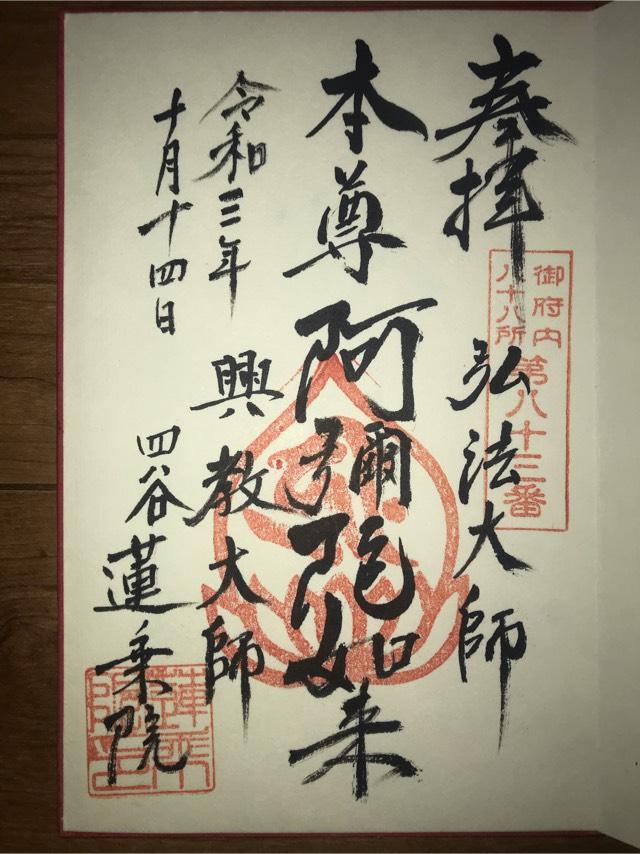 奉拝
御府内
八十八所
第八十三番
弘法大師
本尊 阿彌陀如来
興教大師
令和三年
十月十四日
四谷 蓮乗院